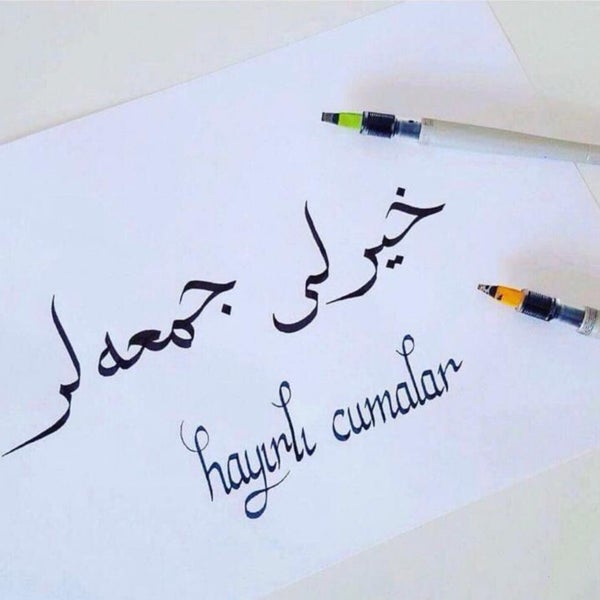 خیرلی جمعه‌لر
hayırlı cumalar